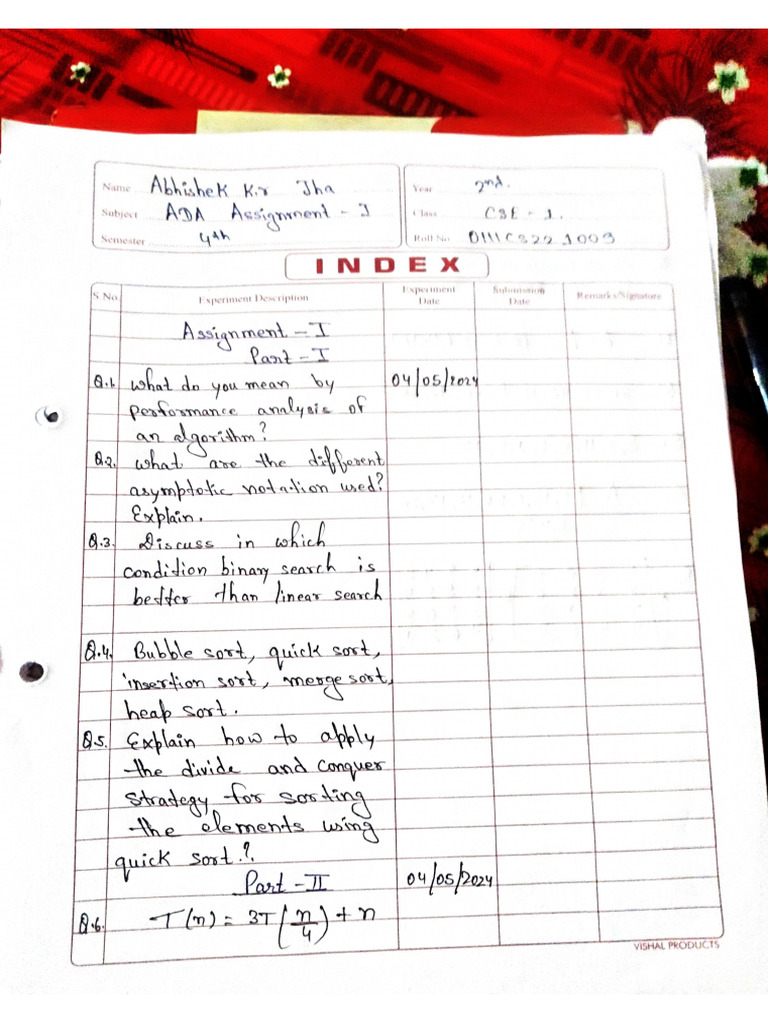 Name Abhishek K.r Jha
Year 2nd.
Subject ADA Assignment - I
Class CSE - 1.
Semester 4th
Roll No. 0111CS221009
INDEX
S.No. Experiment Description Experiment Date Submission Date Remarks/Signature
Assignment - I
Part - I
Q.1. What do you mean by 04/05/2024
performance analysis of
an algorithm?
Q.2. what are the different
asymptotic notation used?
Explain.
Q.3. Discuss in which
condition binary search is
better than linear search
Q.4. Bubble sort, quick sort,
insertion sort, merge sort,
heap sort.
Q.5. Explain how to apply
the divide and conquer
strategy for sorting
the elements using
quick sort.?
Part - II 04/05/2024
Q.6. T(n) = 3T(n/4) + n
VISHAL PRODUCTS